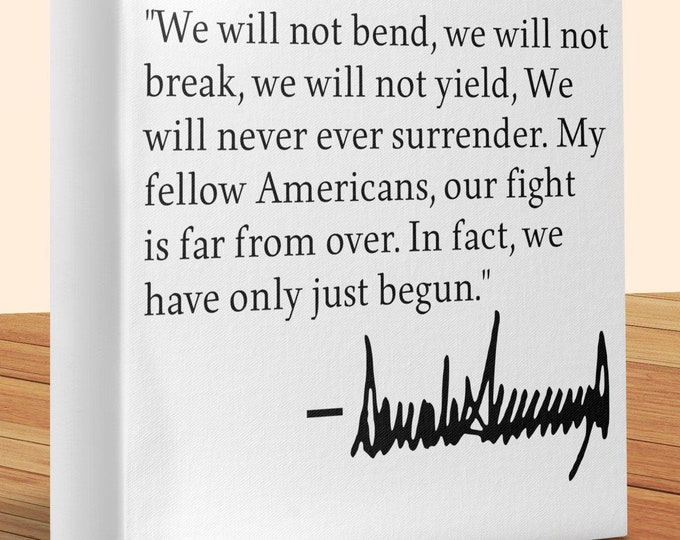 "We will not bend, we will not
break, we will not yield, We
will never ever surrender. My
fellow Americans, our fight
is far from over. In fact, we
have only just begun."
– Donald Trump